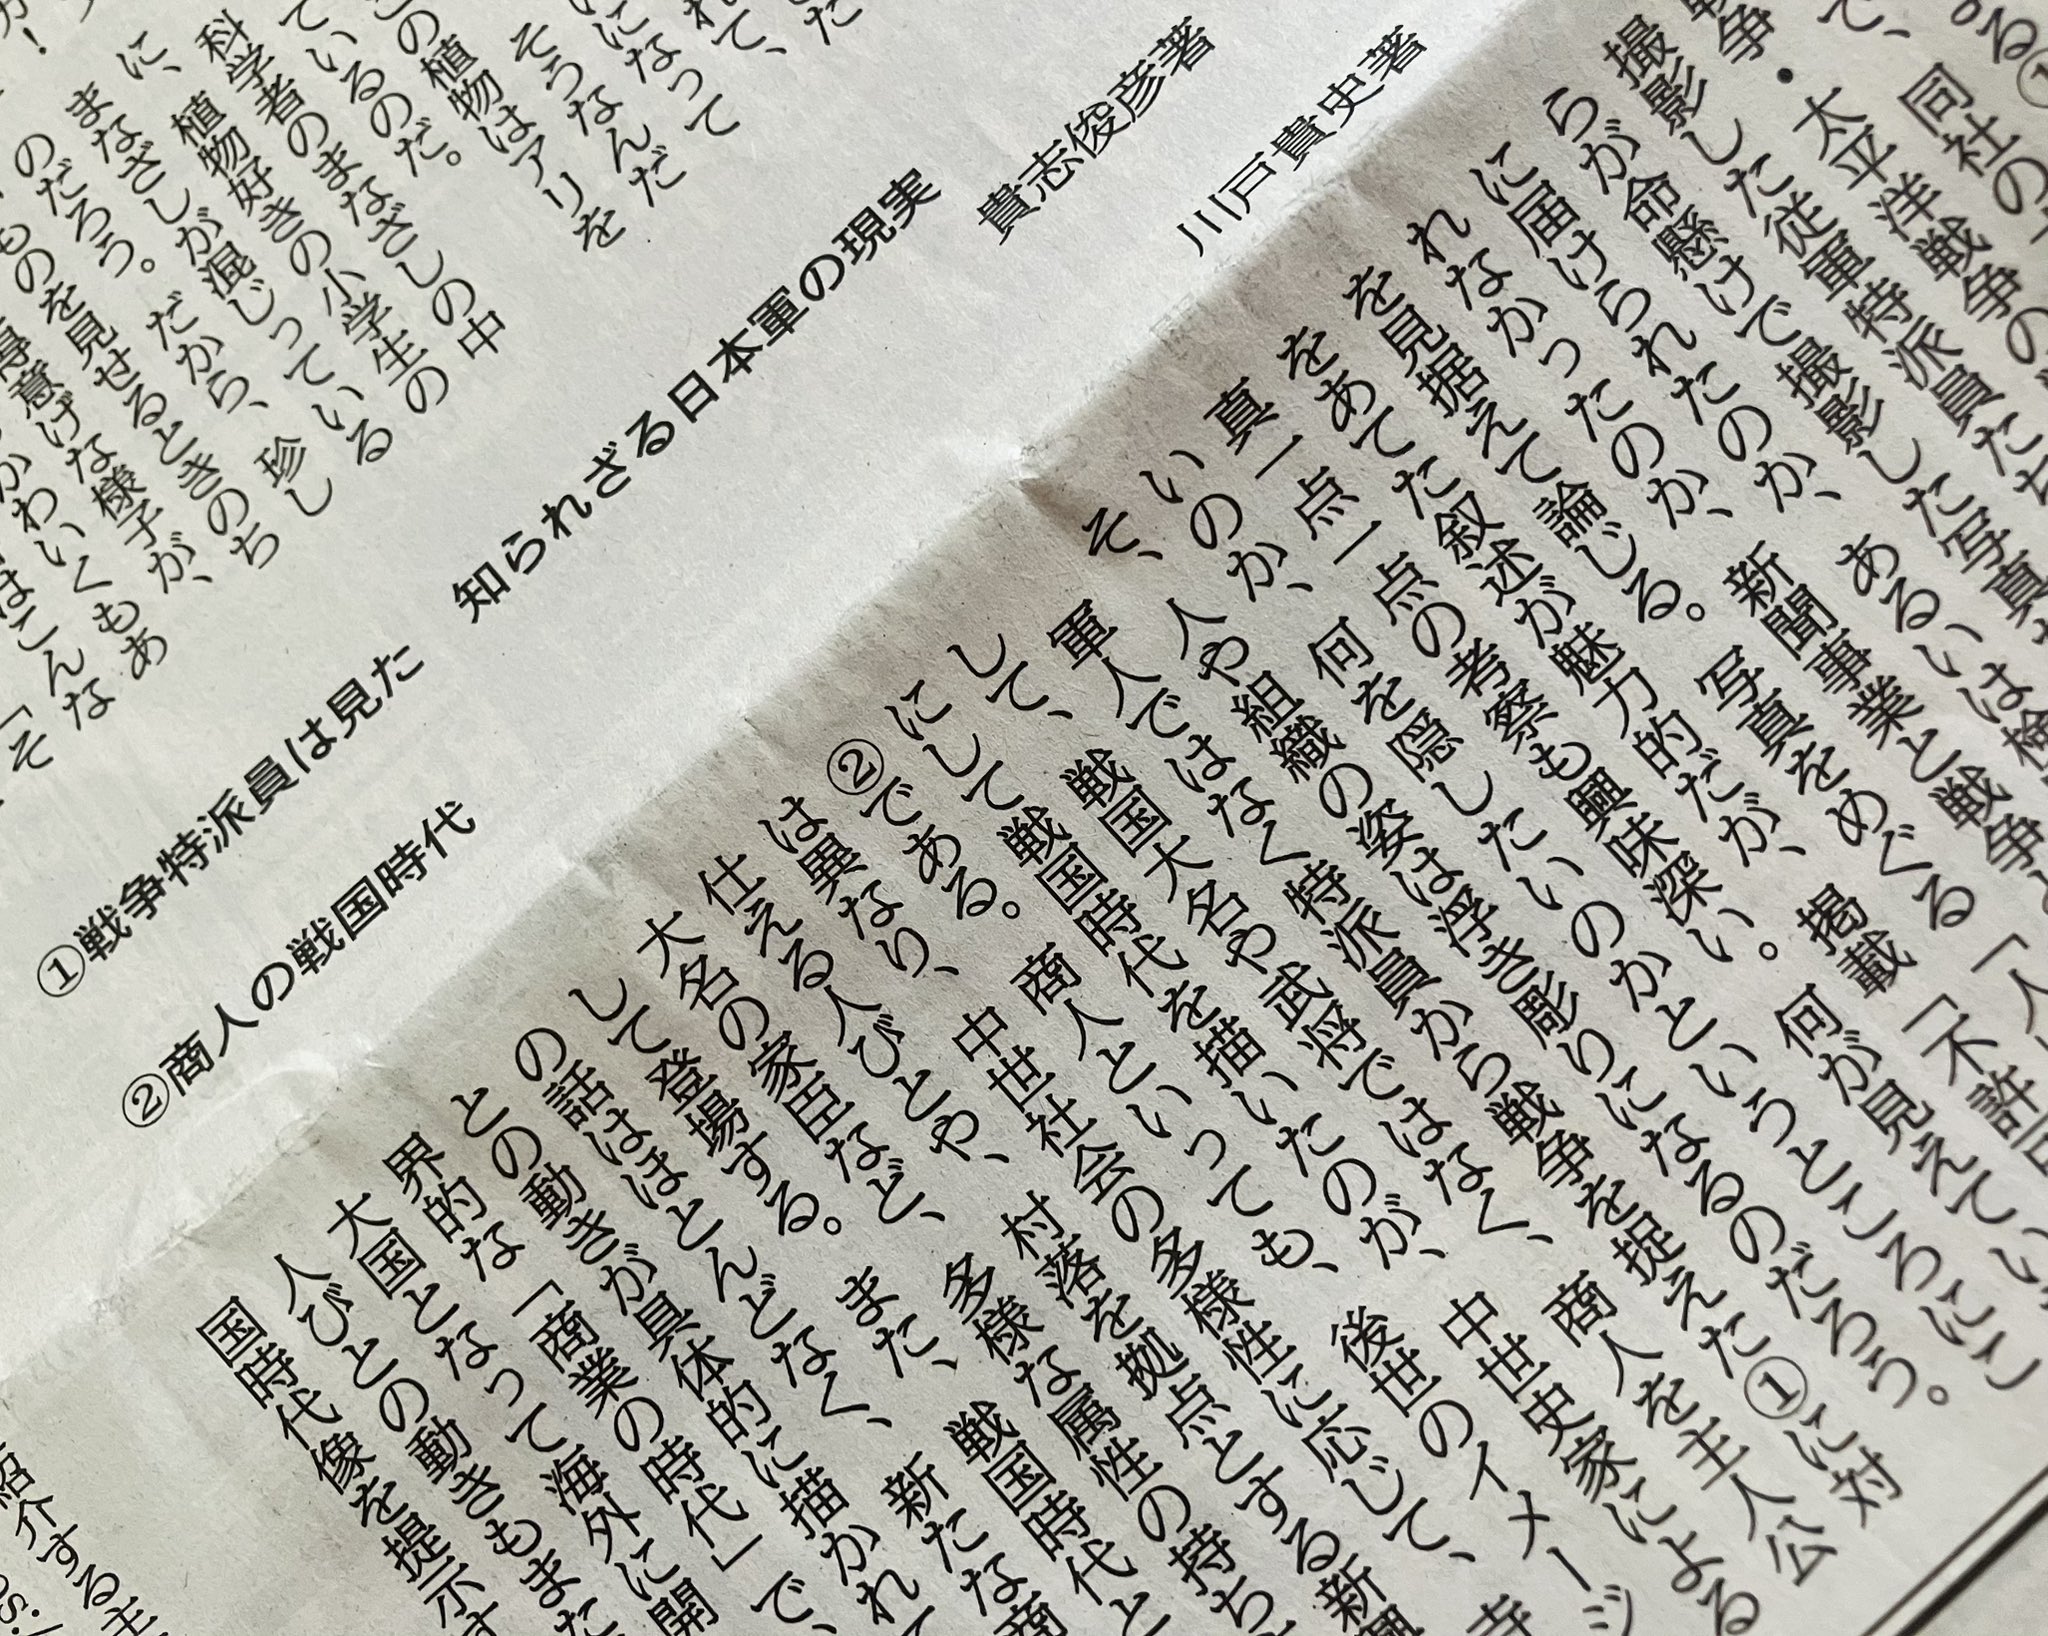 た
れて、
になって
そうなんだ
この植物はアリを
ているのだ。
科学者のまなざしの中
に、植物好きの小学生の
まなざしが混じっている
のだろう。だから、珍し
ものを見せるときのち
得意げな様子が、
かわいくもあ
はこんな
「そ
①戦争特派員は見た 知られざる日本軍の現実 貴志俊彦著
②商人の戦国時代 川戸貴史著
る①
て、同社の
争・太平洋戦争の
撮影した従軍特派員た
らが命懸けで撮影した写真
に届けられたのか、あるいは検
れなかったのか、新聞事業と戦争と
を見据えて論じる。写真をめぐる「人
をあてた叙述が魅力的だが、掲載「不許可
真一点一点の考察も興味深い。何が見えてい
いのか、何を隠したいのかというところにこ
そ、人や組織の姿は浮き彫りになるのだろう。
軍人ではなく特派員から戦争を捉えた①に対
して、戦国大名や武将ではなく、商人を主人公
にして戦国時代を描いたのが、中世史家による
②である。商人といっても、後世のイメージ
は異なり、中世社会の多様性に応じて、寺
仕える人びとや、村落を拠点とする新興
大名の家臣など、多様な属性の持ち
して登場する。また、戦国時代と
の話はほとんどなく、新たな商
との動きが具体的に描かれて
界的な「商業の時代」で、
大国となって海外に開
人びとの動きもまた
国時代像を提示す
紹介する主